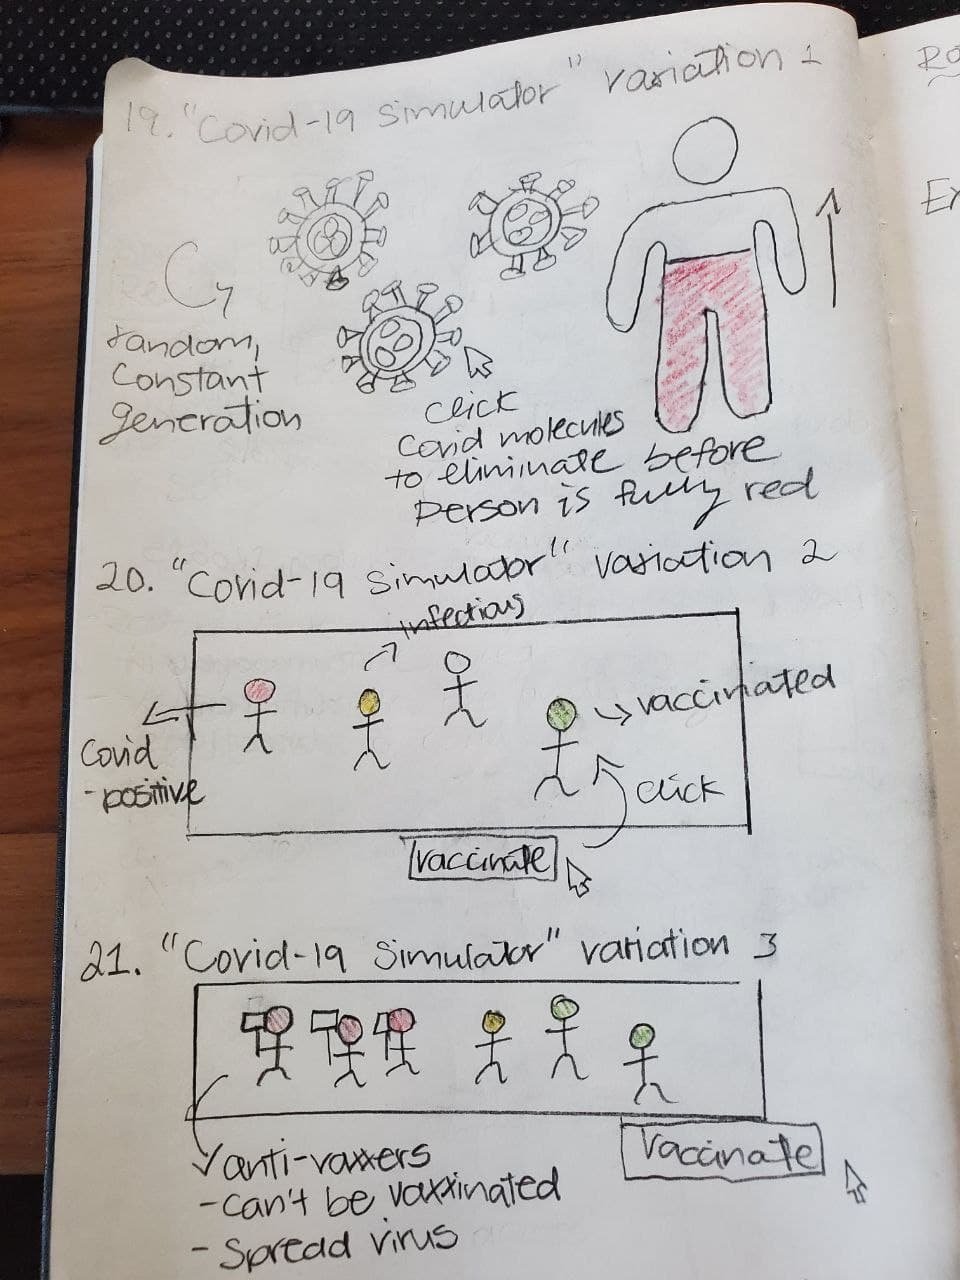 19. "Covid-19 Simulator" variation 1
random,
constant
generation
click
Covid molecules
to eliminate before
person is fully red
20. "Covid-19 Simulator" variation 2
infectious
vaccinated
Covid
-positive
click
vaccinate
21. "Covid-19 Simulator" variation 3
anti-vaxxers
- Can't be vaxxinated
- Spread virus
Vaccinate